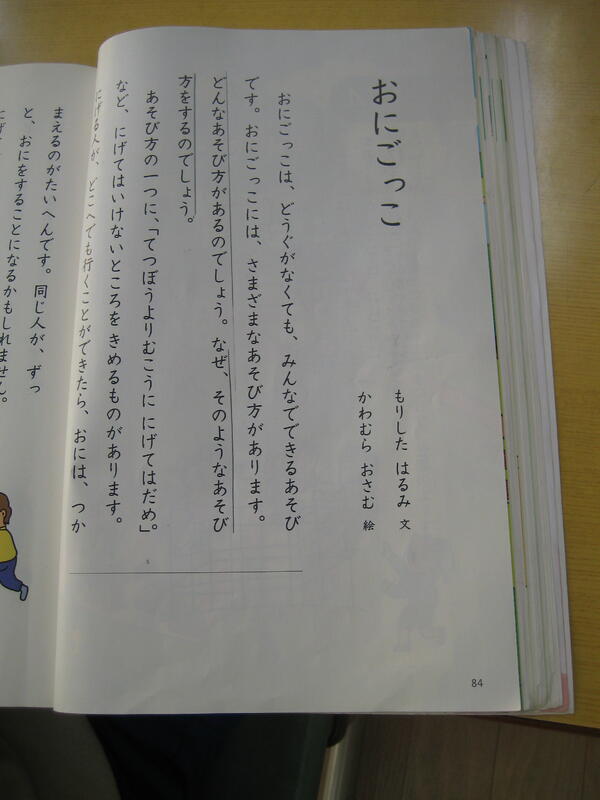 おにごっこ
もりした はるみ 文
かわむら おさむ 絵
おにごっこは、どうぐがなくても、みんなでできるあそび
です。おにごっこには、さまざまなあそび方があります。
どんなあそび方があるのでしょう。なぜ、そのようなあそび
方をするのでしょう。
あそび方の一つに、「てつぼうよりむこうに にげてはだめ。」
など、にげてはいけないところをきめるものがあります。
にげる人が、どこへでも行くことができたら、おには、つか
まえるのがたいへんです。同じ人が、ずっ
と、おにをすることになるかもしれません。
5
84